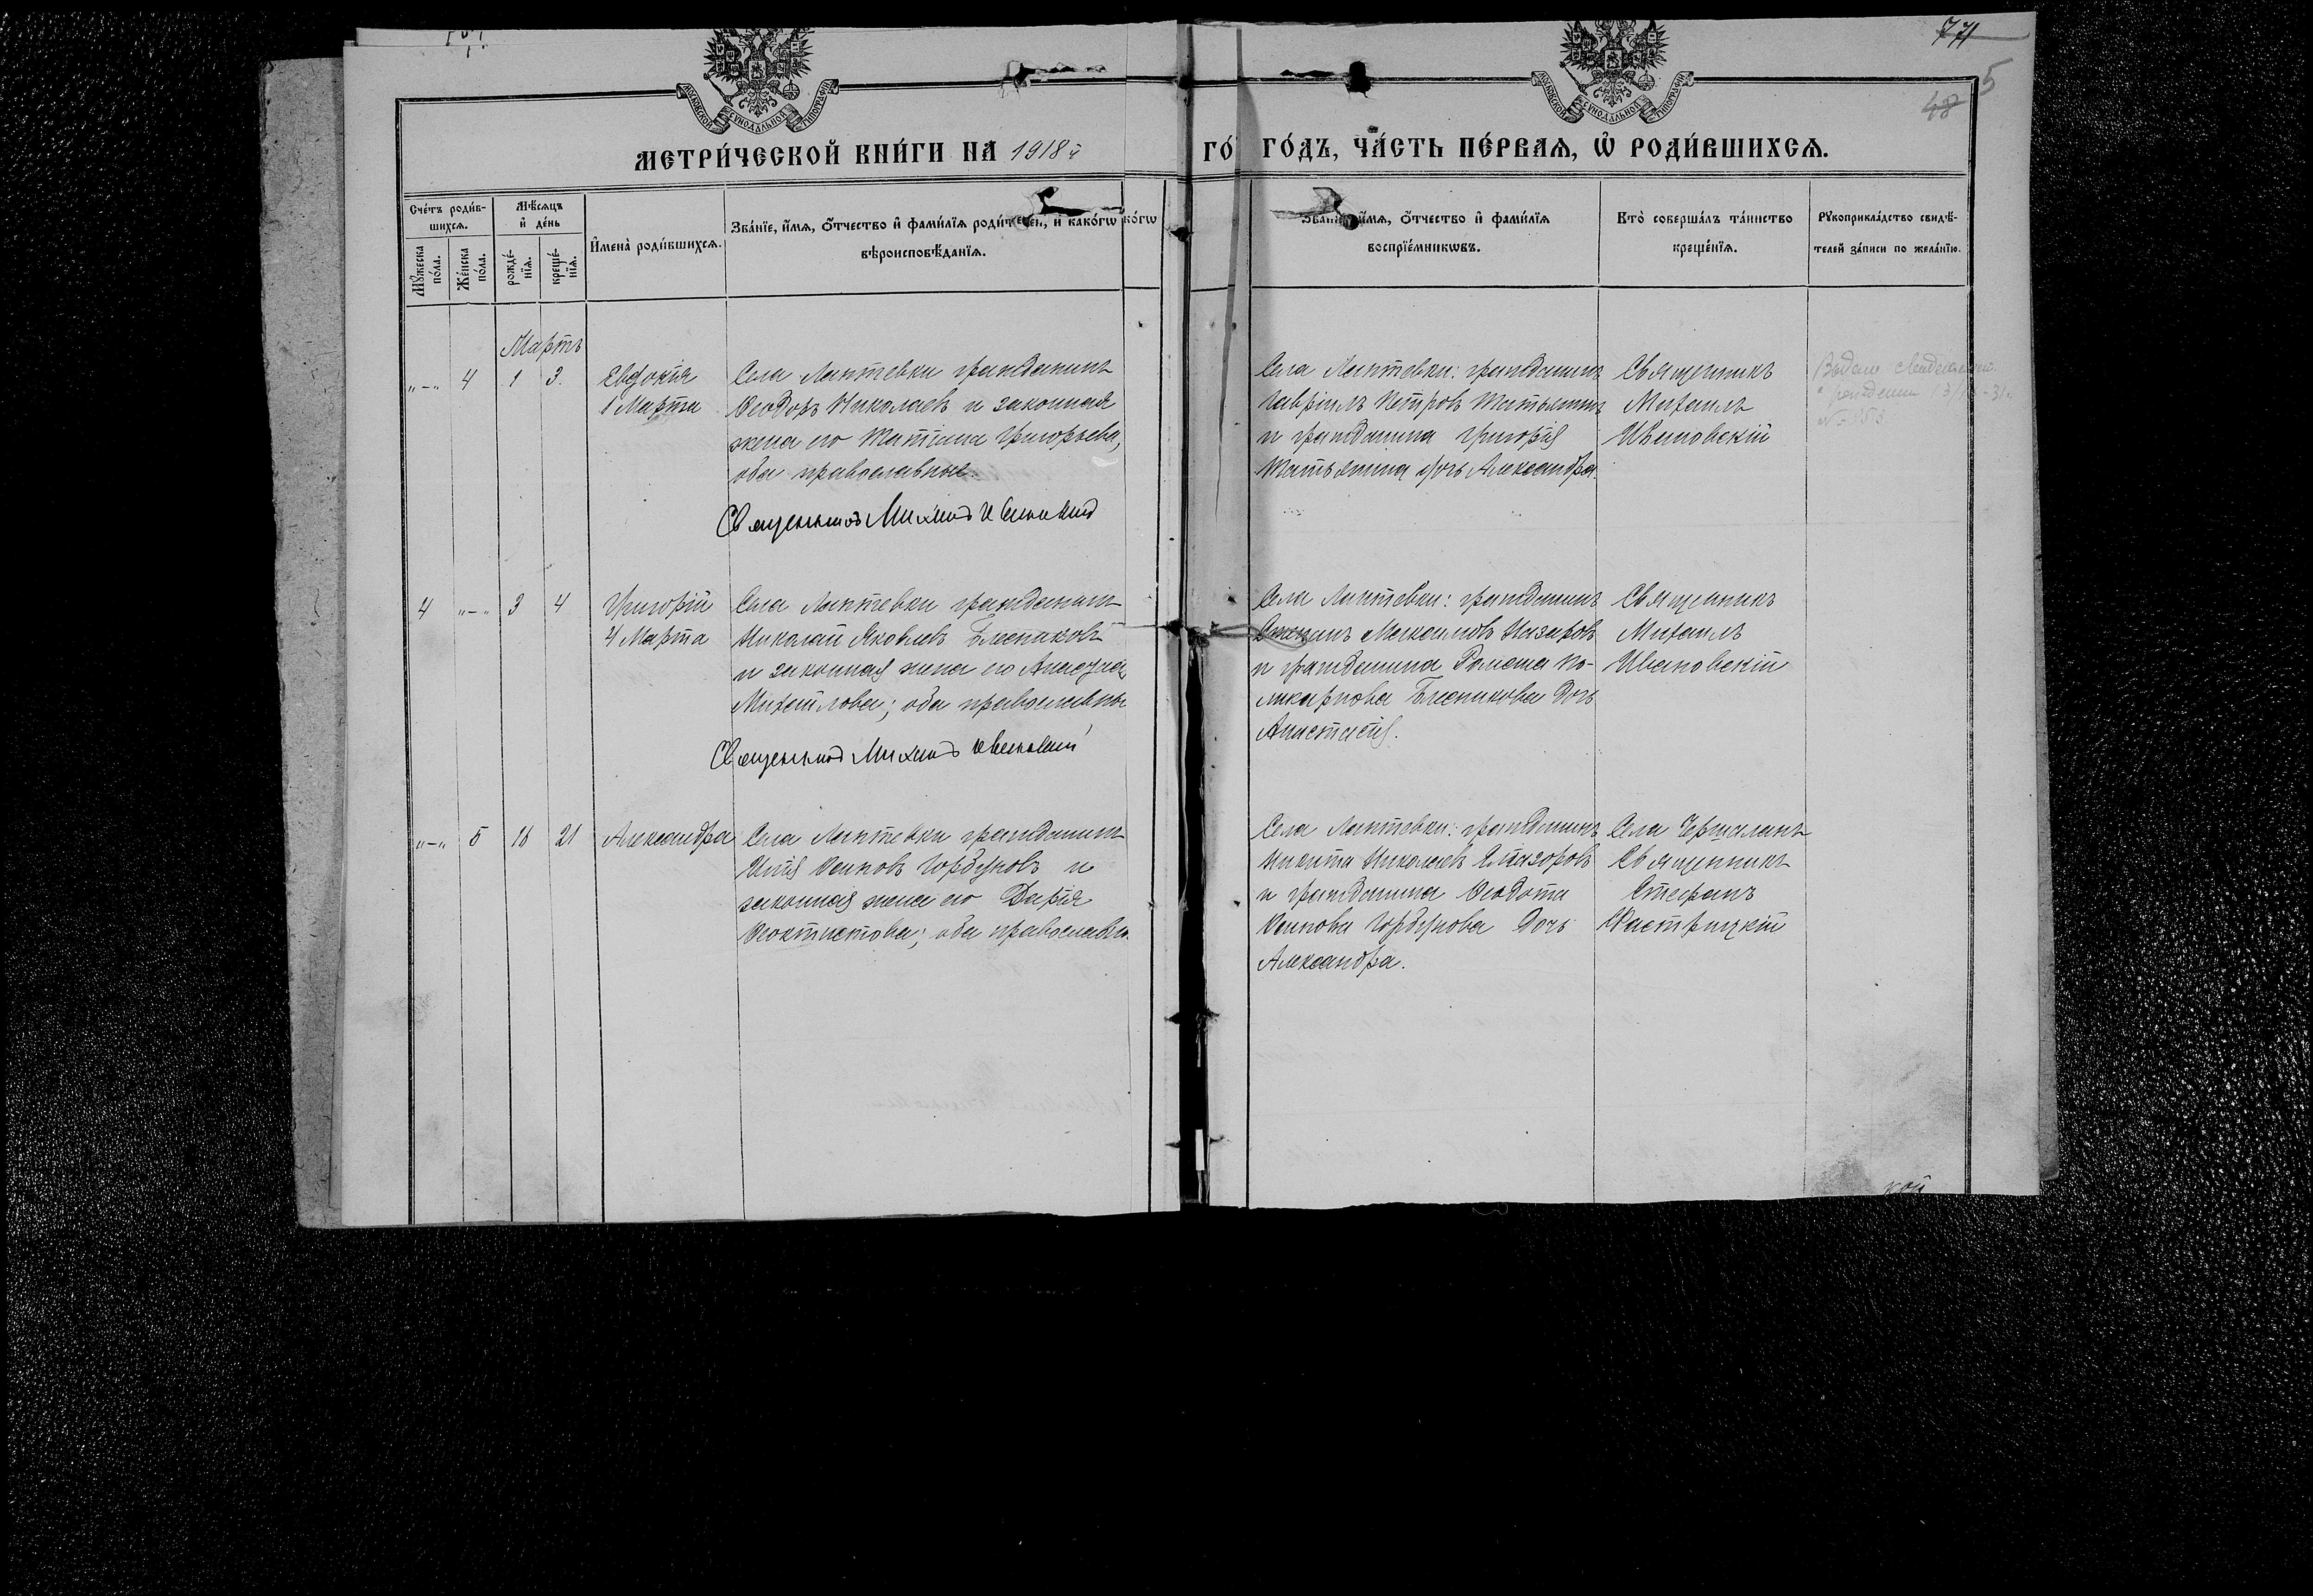 771
5
48
МОСКОВСКОЙ СУНОДАЛЬНОЙ ТИПОГРАФІИ
МОСКОВСКОЙ СУНОДАЛЬНОЙ ТИПОГРАФІИ
МЕТРИ́ЧЕСКОЙ КНИ́ГИ НА 1918й
ГО́ ГО́ДЪ, ЧА́СТЬ ПЕ́РВАЯ, Ѡ҆ РОДИ́ВШИХСЯ.
Сче́тъ роди́в-
шихся.
Мꙋ́жеска по́ла.
Же́нска по́ла.
Мѣ́сяцъ
и҆ де́нь
рожде́-
нїя.
креще́-
нїя.
И҆мена̀ роди́вшихся.
Зва́нїе, и҆́мя, ѻ҆́тчество и҆ фами́лїя роди́телей, и҆ како́гѡ
ко́гѡ
вѣроисповѣ́данїя.
Зва́нїе, и҆́мя, ѻ҆́тчество и҆ фами́лїя
воспрїе́мникѡвъ.
Кто̀ соверша́лъ та́инство
креще́нїя.
Рꙋкоприкла́дство свидѣ́-
телей за́писи по жела́нїю.
Мартъ
"–" 4 1 3.
Евдокія
1 Марта
Села Лаптевки гражданинъ
Ѳеодоръ Николаевъ и законная
жена его Татіана Григорьева,
оба православные.
Священникъ Михаилъ Ивановскій
Села Лаптевки: гражданинъ
Гавріилъ Петровъ Татьянинъ
и гражданина Григорія
Татьянина дочь Александра.
Священникъ
Михаилъ
Ивановскій
Выдано
о рождении
№ 353
4 "–" 3 4
Григорій
4 Марта
Села Лаптевки гражданинъ
Николай Яковлевъ
и законная жена его
Михайлова; оба православны
Священникъ Михаилъ Ивановскій
Села Лаптевки: гражданинъ
Назаровъ
и гражданина По-
ликарпова дочь
Анастасія.
Священникъ
Михаилъ
Ивановскій
"–" 5 18 21
Александра
Села Лаптевки гражданинъ
Илія Осиповъ Горбуновъ и
законная жена его Дарія
Ѳеоктистова; оба православн.
Села Лаптевки: гражданинъ
Никита Николаевъ
и гражданина Ѳеодота
Осипова Горбунова дочь
Александра.
Села
Священникъ
Стефанъ
кой